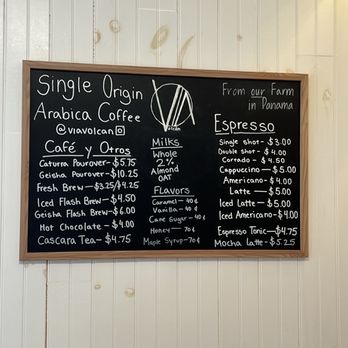 Single Origin
Arabica Coffee
@viavolcan
Café y Otros
Caturra Pourover - $5.75
Geisha Pourover - $10.25
Fresh Brew - $3.25/$4.25
Iced Flash Brew - $4.50
Geisha Flash Brew - $6.00
Hot Chocolate - $4.00
Cascara Tea - $4.75
VIA
Volcan
Milks
Whole
2%
Almond
OAT
Flavors
Caramel - 40¢
Vanilla - 40¢
Cane Sugar - 40¢
Honey - 70¢
Maple Syrup - 70¢
From our Farm
in Panama
Espresso
Single shot - $3.00
Double shot - $4.00
Cortado - $4.50
Cappuccino - $5.00
Americano - $4.00
Latte - $5.00
Iced Latte - $5.00
Iced Americano - $4.00
Espresso Tonic - $4.75
Mocha Latte - $5.25